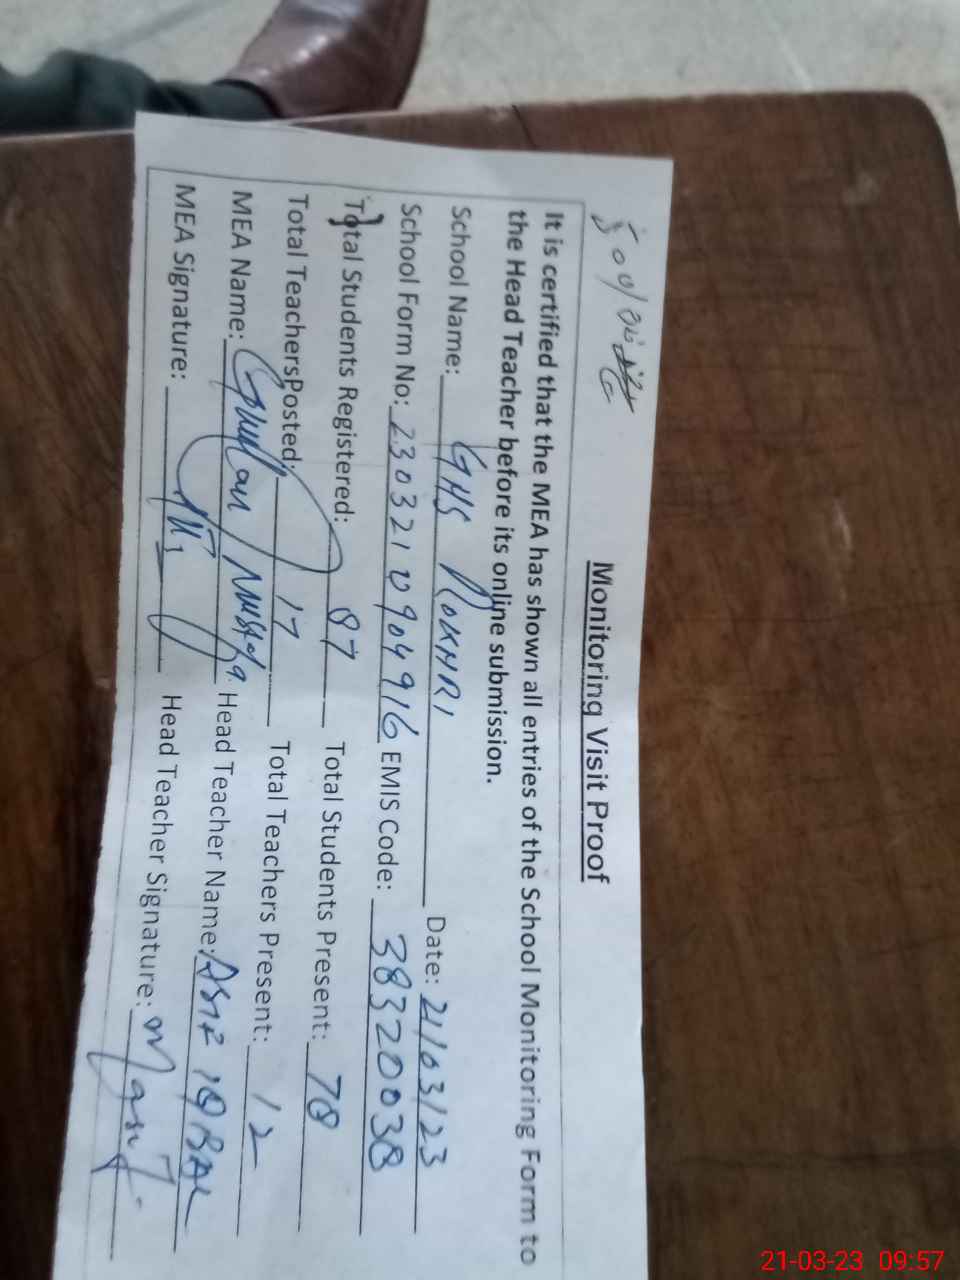 Monitoring Visit Proof
It is certified that the MEA has shown all entries of the School Monitoring Form to
the Head Teacher before its online submission.
School Name: GHS ROKHRI Date: 21/03/23
School Form No: 230321 EMIS Code: 38320038
Total Students Registered: 87 Total Students Present: 78
Total TeachersPosted: 17 Total Teachers Present: 12
MEA Name: Ghulam Head Teacher Name: ASIF IQBAL
MEA Signature: Head Teacher Signature:
21-03-23 09:57